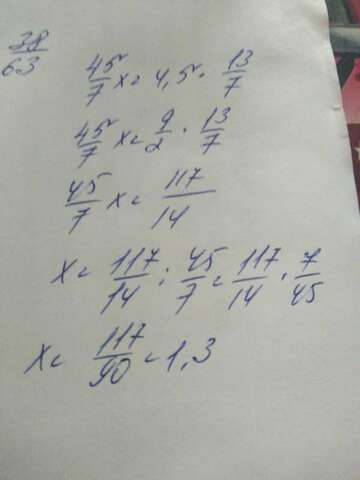 38/63
45/7 x = 4,5 · 13/7
45/7 x = 9/2 · 13/7
45/7 x = 117/14
x = 117/14 : 45/7 = 117/14 · 7/45
x = 117/90 = 1,3